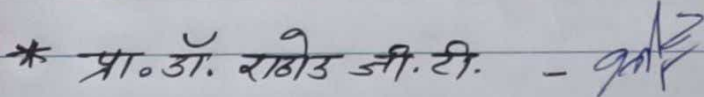 * प्रा.डॉ. राठोड जी.टी. -